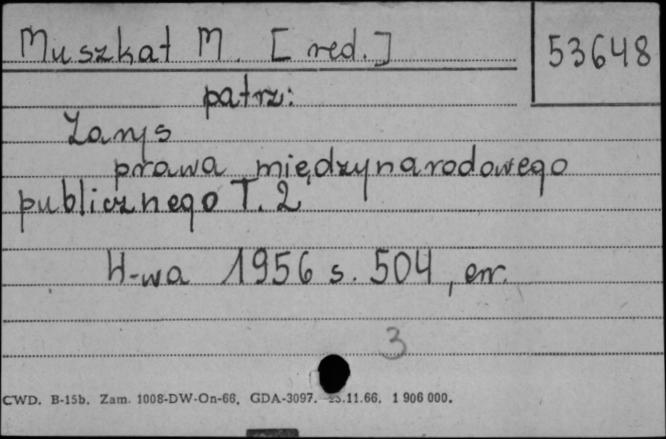 Muszkat M. [red.]
53648
patrz:
Zarys
prawa międzynarodowego
publicznego T. 2
W-wa 1956 s. 504, err.
3
CWD. B-15b. Zam. 1008-DW-On-66. GDA-3097. 11.66. 1 906 000.